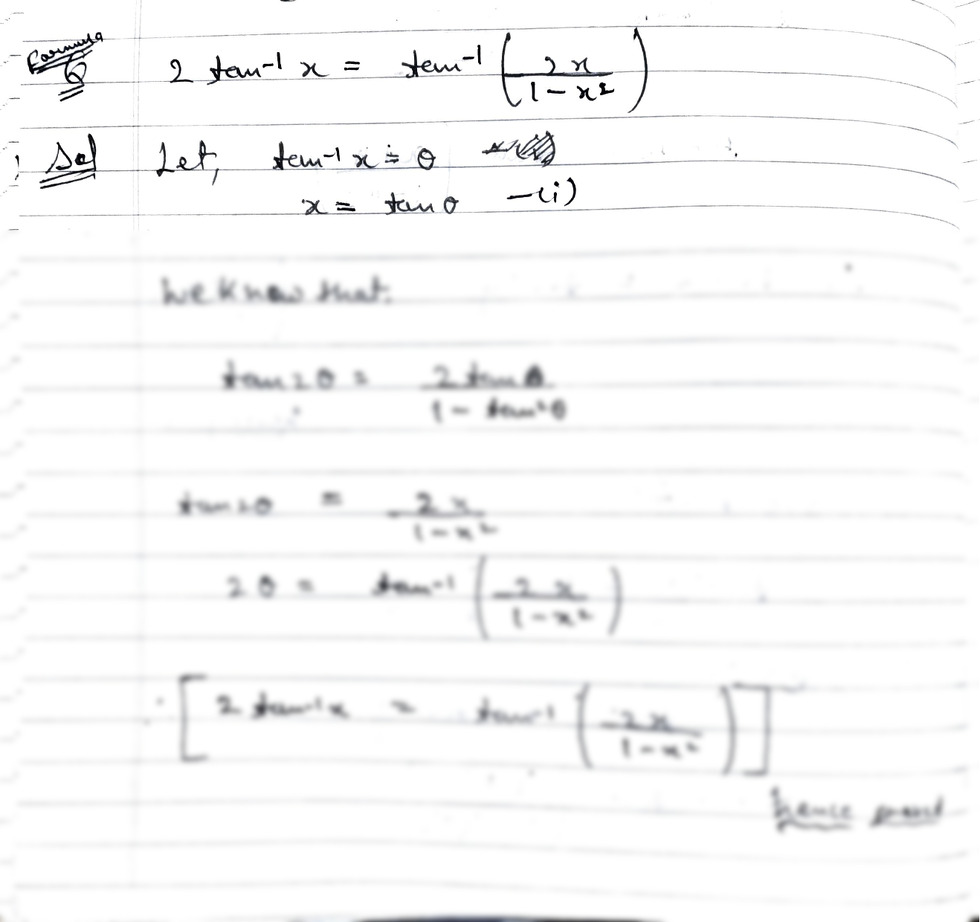 Formula
Q 2 tan⁻¹ x = tan⁻¹ (2x / 1 - x²)
Sol Let, tan⁻¹ x = θ
x = tan θ -(i)
We know that.
tan 2θ = 2 tan θ / 1 - tan²θ
tan 2θ = 2x / 1 - x²
2θ = tan⁻¹ (2x / 1 - x²)
[2 tan⁻¹x = tan⁻¹ (2x / 1 - x²)]
hence